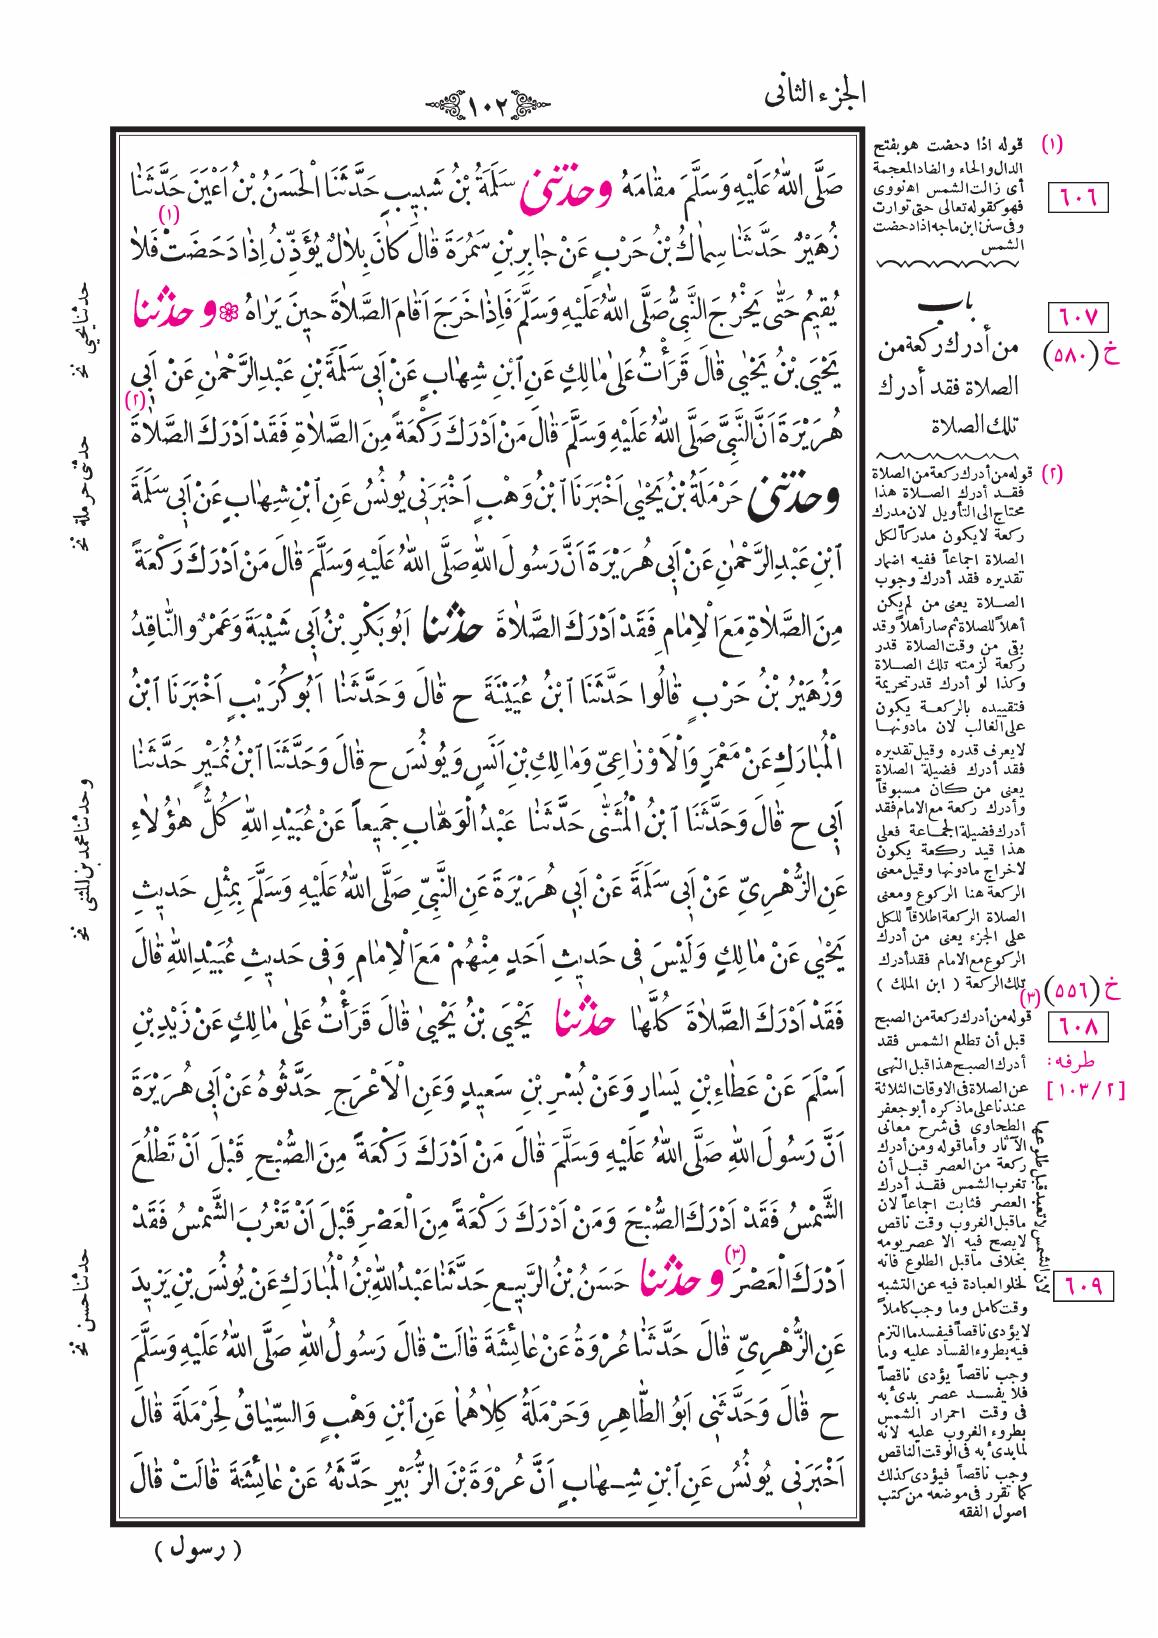 الجزء الثانى
١٠٢
صَلَّى اللهُ عَلَيْهِ وَسَلَّمَ مَقَامَهُ وحدثنى سَلَمَةُ بْنُ شَبِيبٍ حَدَّثَنَا الْحَسَنُ بْنُ اَعْيَنَ حَدَّثَنَا
زُهَيْرٌ حَدَّثَنَا سِمَاكُ بْنُ حَرْبٍ عَنْ جَابِرِ بْنِ سَمُرَةَ قَالَ كَانَ بِلاٰلٌ يُؤَذِّنُ اِذَا دَحَضَتْ (١) فَلاٰ
يُقِيمُ حَتّٰى يَخْرُجَ النَّبِيُّ صَلَّى اللهُ عَلَيْهِ وَسَلَّمَ فَاِذَا خَرَجَ اَقَامَ الصَّلاٰةَ حِينَ يَرَاهُ ❁ وحدثنا
يَحْيَى بْنُ يَحْيٰى قَالَ قَرَأْتُ عَلىٰ مَالِكٍ عَنِ ابْنِ شِهَابٍ عَنْ اَبِى سَلَمَةَ بْنِ عَبْدِ الرَّحْمٰنِ عَنْ اَبِى
هُرَيْرَةَ اَنَّ النَّبِيَّ صَلَّى اللهُ عَلَيْهِ وَسَلَّمَ قَالَ مَنْ اَدْرَكَ رَكْعَةً مِنَ الصَّلاٰةِ فَقَدْ اَدْرَكَ الصَّلاٰةَ (٢)
وحدثنى حَرْمَلَةُ بْنُ يَحْيٰى اَخْبَرَنَا ابْنُ وَهْبٍ اَخْبَرَنِى يُونُسُ عَنِ ابْنِ شِهَابٍ عَنْ اَبِى سَلَمَةَ
ابْنِ عَبْدِ الرَّحْمٰنِ عَنْ اَبِى هُرَيْرَةَ اَنَّ رَسُولَ اللهِ صَلَّى اللهُ عَلَيْهِ وَسَلَّمَ قَالَ مَنْ اَدْرَكَ رَكْعَةً
مِنَ الصَّلاٰةِ مَعَ الْاِمَامِ فَقَدْ اَدْرَكَ الصَّلاٰةَ حدثنا اَبُو بَكْرِ بْنُ اَبِى شَيْبَةَ وَعَمْرٌو النَّاقِدُ
وَزُهَيْرُ بْنُ حَرْبٍ قَالُوا حَدَّثَنَا ابْنُ عُيَيْنَةَ ح قَالَ وَحَدَّثَنَا اَبُو كُرَيْبٍ اَخْبَرَنَا ابْنُ
الْمُبَارَكِ عَنْ مَعْمَرٍ وَالْاَوْزَاعِيِّ وَمَالِكِ بْنِ اَنَسٍ وَيُونُسَ ح قَالَ وَحَدَّثَنَا ابْنُ نُمَيْرٍ حَدَّثَنَا
اَبِى ح قَالَ وَحَدَّثَنَا ابْنُ الْمُثَنّٰى حَدَّثَنَا عَبْدُ الْوَهَّابِ جَمِيعاً عَنْ عُبَيْدِ اللهِ كُلُّ هٰؤُلاٰءِ
عَنِ الزُّهْرِيِّ عَنْ اَبِى سَلَمَةَ عَنْ اَبِى هُرَيْرَةَ عَنِ النَّبِيِّ صَلَّى اللهُ عَلَيْهِ وَسَلَّمَ بِمِثْلِ حَدِيثِ
يَحْيٰى عَنْ مَالِكٍ وَلَيْسَ فِى حَدِيثِ اَحَدٍ مِنْهُمْ مَعَ الْاِمَامِ وَفِى حَدِيثِ عُبَيْدِ اللهِ قَالَ
فَقَدْ اَدْرَكَ الصَّلاٰةَ كُلَّهَا حدثنا يَحْيَى بْنُ يَحْيىٰ قَالَ قَرَأْتُ عَلىٰ مَالِكٍ عَنْ زَيْدِ بْنِ
اَسْلَمَ عَنْ عَطَاءِ بْنِ يَسَارٍ وَعَنْ بُسْرِ بْنِ سَعِيدٍ وَعَنِ الْاَعْرَجِ حَدَّثُوهُ عَنْ اَبِى هُرَيْرَةَ
اَنَّ رَسُولَ اللهِ صَلَّى اللهُ عَلَيْهِ وَسَلَّمَ قَالَ مَنْ اَدْرَكَ رَكْعَةً مِنَ الصُّبْحِ قَبْلَ اَنْ تَطْلُعَ
الشَّمْسُ فَقَدْ اَدْرَكَ الصُّبْحَ وَمَنْ اَدْرَكَ رَكْعَةً مِنَ الْعَصْرِ قَبْلَ اَنْ تَغْرُبَ الشَّمْسُ فَقَدْ
اَدْرَكَ الْعَصْرَ (٣) وحدثنا حَسَنُ بْنُ الرَّبِيعِ حَدَّثَنَا عَبْدُ اللهِ بْنُ الْمُبَارَكِ عَنْ يُونُسَ بْنِ يَزِيدَ
عَنِ الزُّهْرِيِّ قَالَ حَدَّثَنَا عُرْوَةُ عَنْ عَائِشَةَ قَالَتْ قَالَ رَسُولُ اللهِ صَلَّى اللهُ عَلَيْهِ وَسَلَّمَ
ح قَالَ وَحَدَّثَنِى اَبُو الطَّاهِرِ وَحَرْمَلَةُ كِلاٰهُمَا عَنِ ابْنِ وَهْبٍ وَالسِّيَاقُ لِحَرْمَلَةَ قَالَ
اَخْبَرَنِى يُونُسُ عَنِ ابْنِ شِهَابٍ اَنَّ عُرْوَةَ بْنَ الزُّبَيْرِ حَدَّثَهُ عَنْ عَائِشَةَ قَالَتْ قَالَ
( رسول )
(١) قوله اذا دحضت هو بفتح
الدال والحاء والضاد المعجمة
أى زالت الشمس اه نووى
فهو كقوله تعالى حتى توارت
وفى سنن ابن ماجه اذا دحضت
الشمس
٦٠٦
باب
من أدرك ركعة من
الصلاة فقد أدرك
تلك الصلاة
٦٠٧
خ (٥٨٠)
(٢) قوله من أدرك ركعة من الصلاة
فقد أدرك الصلاة هذا
محتاج الى التأويل لان مدرك
ركعة لا يكون مدركاً لكل
الصلاة اجماعاً ففيه اضمار
تقديره فقد أدرك وجوب
الصلاة يعنى من لم يكن
أهلاً للصلاة ثم صار أهلاً وقد
بقى من وقت الصلاة قدر
ركعة لزمته تلك الصلاة
وكذا لو أدرك قدر تحريمة
فتقييده بالركعة يكون
على الغالب لان مادونها
لا يعرف قدره وقيل تقديره
فقد أدرك فضيلة الصلاة
يعنى من كان مسبوقاً
وأدرك ركعة مع الامام فقد
أدرك فضيلة الجماعة فعلى
هذا قيد ركعة يكون
لاخراج مادونها وقيل معنى
الركعة هنا الركوع ومعنى
الصلاة الركعة اطلاقاً للكل
على الجزء يعنى من أدرك
الركوع مع الامام فقد أدرك
تلك الركعة ( ابن الملك )
خ (٥٥٦)
٦٠٨
طرفه:
[١٠٣/٢]
(٣) قوله من أدرك ركعة من الصبح
قبل أن تطلع الشمس فقد
أدرك الصبح هذا قبل النهى
عن الصلاة فى الاوقات الثلاثة
عندنا على ماذكره أبو جعفر
الطحاوى فى شرح معانى
الآثار وأما قوله ومن أدرك
ركعة من العصر قبل أن
تغرب الشمس فقد أدرك
العصر فثابت اجماعاً لان
ماقبل الغروب وقت ناقص
لا يصح فيه الا عصر يومه
بخلاف ماقبل الطلوع فانه
لخلو العبادة فيه عن التشبه
وقت كامل وما وجب كاملاً
لا يؤدى ناقصاً فيفسد ما التزم
فيه بطروء الفساد عليه وما
وجب ناقصاً يؤدى ناقصاً
فلا يفسد عصر بدئ به
فى وقت احمرار الشمس
بطروء الغروب عليه لانه
لما بدئ به فى الوقت الناقص
وجب ناقصاً فيؤدى كذلك
كما تقرر فى موضعه من كتب
اصول الفقه
٦٠٩
حدثنا يحيى نخ
حدثنى حرملة نخ
وحدثنا محمد بن المثنى نخ
حدثنا حسن نخ